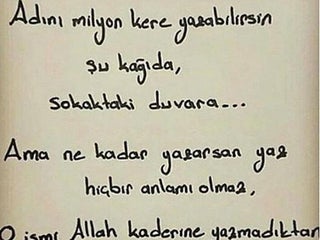 Adını milyon kere yazabilirsin
şu kağıda,
sokaktaki duvara...
Ama ne kadar yazarsan yaz
hiçbir anlamı olmaz,
O ismi Allah kaderine yazmadıktan